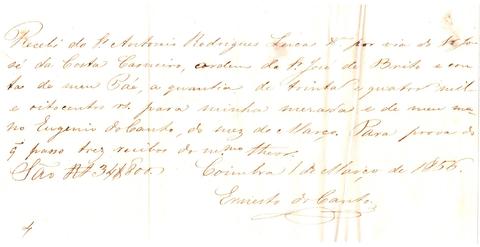 Recebi do Sr. Antonio Rodrigues Lucas Xer por via do Sr. Jo-
sé da Costa Carneiro, e ordem do Sr. José de Brito e con-
tas de meu Páe, a quantia de trinta e quatro mil
e oitocentos rs. para minha mezada e de meu ma-
no Eugenio do Canto, do mez de Março. Para prova do
q̃ passo trez recibos do m.mo theor.
São R$ 34$800.
Coimbra 1 de Março de 1856
Ernesto do Canto.